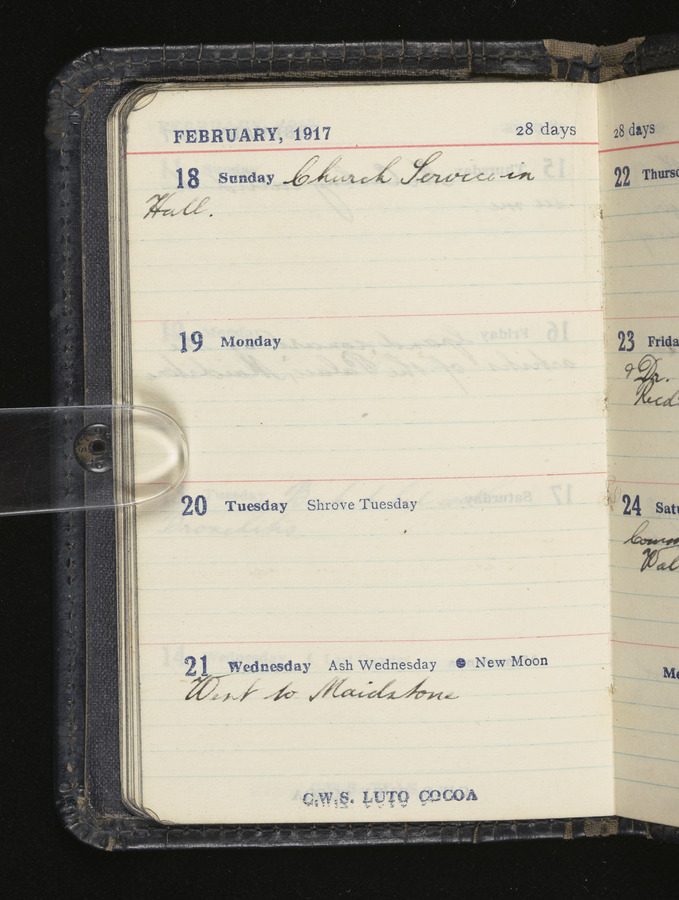 FEBRUARY, 1917 28 days
18 Sunday Church Service in
Hall.
19 Monday
20 Tuesday Shrove Tuesday
21 Wednesday Ash Wednesday ● New Moon
Went to Maidstone
C.W.S. LUTO COCOA
28 days
22
23
& Dr.
24